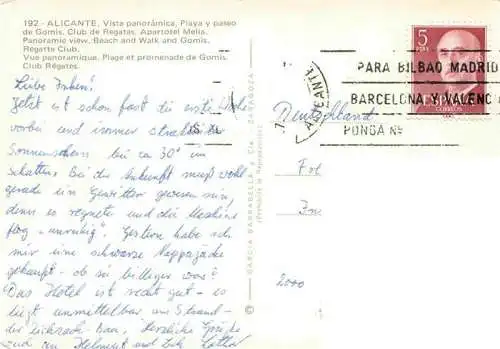 192 - ALICANTE, Vista panorámica, Playa y paseo
de Gomis, Club de Regatas, Apartotel Melia.
Panoramic view, Beach and Walk and Gomis,
Regatta Club.
Vue panoramique. Plage et promenade de Gomis.
Club Régates.
Liebe Inken!
Jetzt ist schon fast die erste Woche
vorbei und immer strahlender
Sonnenschein bis ca 30° im
Schatten. Bei der Ankunft muß wohl
gerade ein Gewitter gewesen sein,
denn es regnete und die Maschine
flog "unruhig". Gestern habe ich
mir eine schwarze Nappajacke
gekauft - ob sie billiger war?
Das Hotel ist recht gut - es
liegt unmittelbar am Strand -
der Zickzack-Bau. Herzliche Grüße
und an Helmut und
GARCIA GARRABELLA y Cía. ZARAGOZA
(Prohibida la Reproducción)
©
5
PTAS
CORREOS
ALICANTE
PARA BILBAO MADRID
BARCELONA Y VALENCIA
PONGA Nº
Deutschland
2000